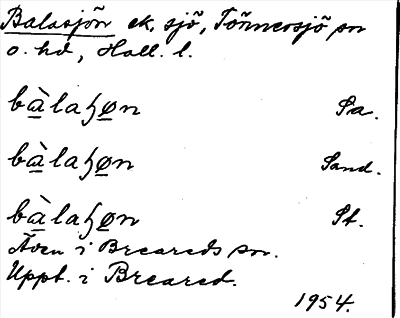 Balasjön ek, sjö, Tönnersjö sn
o. hd, Hall. l.
bàlaɧøn Sa.
bàlaɧøn Sand.
bàlaɧøn St.
Även i Breareds sn.
Uppt. i Breared.
1954.